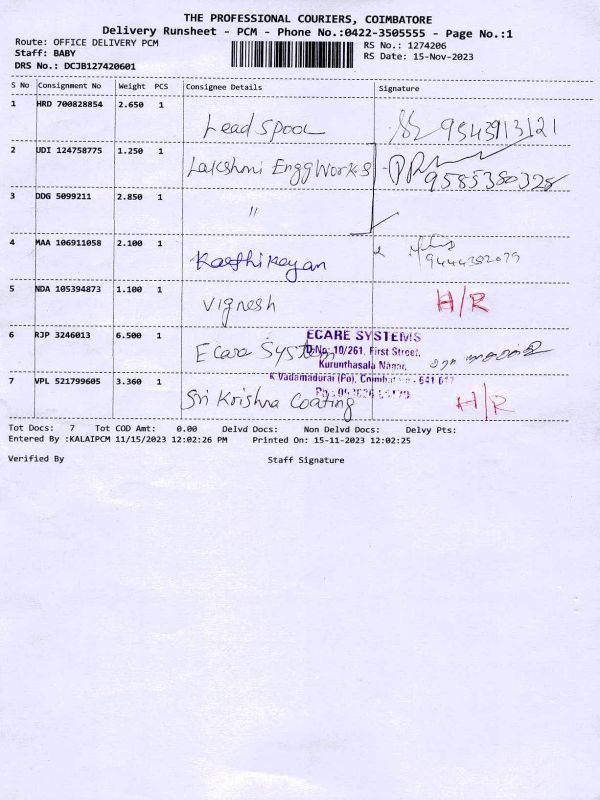 THE PROFESSIONAL COURIERS, COIMBATORE
Delivery Runsheet - PCM - Phone No.:0422-3505555 - Page No.:1
Route: OFFICE DELIVERY PCM RS No.: 1274206
Staff: BABY RS Date: 15-Nov-2023
DRS No.: DCJB127420601
S No Consignment No Weight PCS Consignee Details Signature
1 HRD 700828854 2.650 1
Lead Spool 9543913121
2 UDI 124758775 1.250 1
Lakshmi Engg Works 9585380328
3 DDG 5099211 2.850 1
"
4 MAA 106911058 2.100 1
Karthikeyan 9444392079
5 NDA 105394873 1.100 1
Vignesh H/R
6 RJP 3246013 6.500 1
Ecare System
ECARE SYSTEMS
D.No: 10/261, First Street,
Kurunthasala Nagar,
K.Vadamadurai (Po), Coimbatore - 641 017
7 VPL 521799605 3.360 1
Sri Krishna Coating H/R
Tot Docs: 7 Tot COD Amt: 0.00 Delvd Docs: Non Delvd Docs: Delvy Pts:
Entered By :KALAIPCM 11/15/2023 12:02:26 PM Printed On: 15-11-2023 12:02:25
Verified By Staff Signature